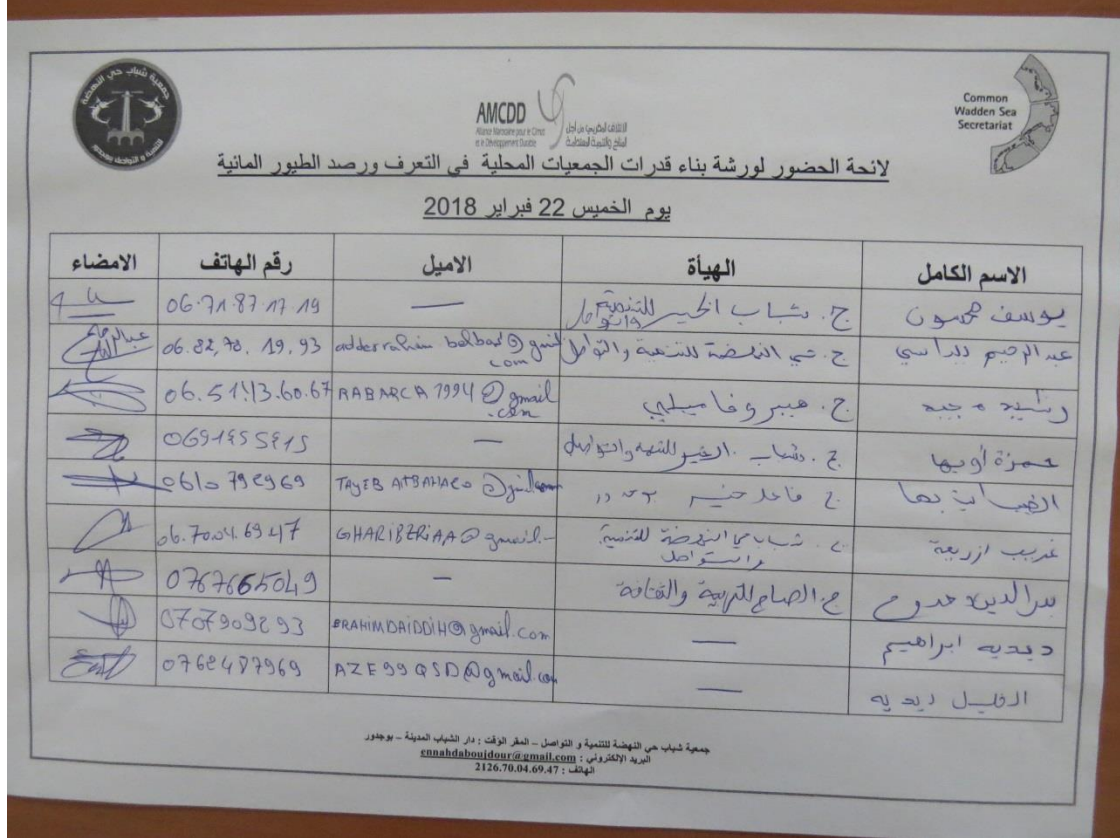 جمعية شباب حي النهضة
للتنمية و التواصل بوجدور
AMCDD
Alliance Marocaine pour le Climat
et le Développement Durable
الائتلاف المغربي من أجل
المناخ والتنمية المستدامة
Common
Wadden Sea
Secretariat
لائحة الحضور لورشة بناء قدرات الجمعيات المحلية في التعرف ورصد الطيور المائية
يوم الخميس 22 فبراير 2018
الاسم الكامل الهيأة الاميل رقم الهاتف الامضاء
يوسف ج. شباب الخير للتنمية والتواصل — 06.71.87.17.19
عبد الرحيم ج. حي النهضة للتنمية والتواصل @gmail.com 06.82.70.19.93
رشيد ج. RABARCA1994@gmail.com 06.51.13.60.67
حمزة ج. شباب الخير للتنمية والتواصل — 0691455415
ج. 0610792969
غريب ازريعة ج. شباب حي النهضة للتنمية والتواصل GHARIBZRIAA@gmail.- 06.70.04.69.47
بدر الدين ج. للتربية والثقافة — 0767665049
ديديه ابراهيم — BRAHIMDAIDDIH@gmail.com 0707909293
ديديه — AZE99QSD@gmail.com 0762487969
جمعية شباب حي النهضة للتنمية و التواصل – المقر الؤقت : دار الشباب المدينة – بوجدور
البريد الإلكتروني : ennahdaboujdour@gmail.com
الهاتف : 2126.70.04.69.47